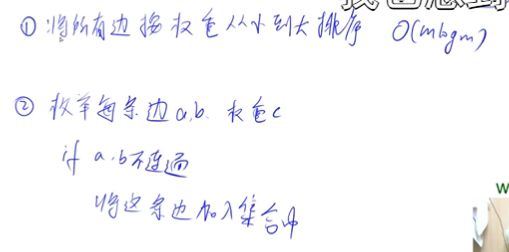 ① 将所有边按权重从小到大排序 O(mlogm)
② 枚举每条边a,b 权重c
if a,b不连通
将这条边加入集合中